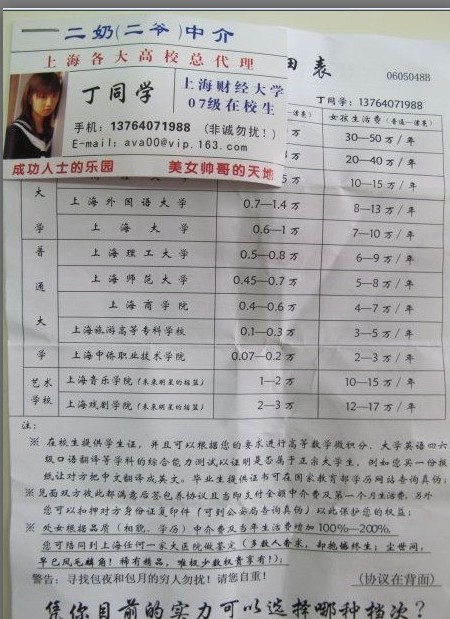 一二奶(二爷)中介
上海各大高校总代理
丁同学
上海财经大学
07级在校生
手机：13764071988 (非诚勿扰！)
E-mail：ava00@vip.163.com
成功人士的乐园 美女帅哥的天地
表
0605048B
丁同学：13764071988
女孩生活费(普通—漂亮)
30—50万/年
20—40万/年
10—15万/年
大 上海外国语大学 0.7—1.4万 8—13万/年
学 上海大学 0.6—1万 7—10万/年
普 上海理工大学 0.5—0.8万 6—9万/年
通 上海师范大学 0.45—0.7万 5—8万/年
大 上海商学院 0.4—0.6万 4—7万/年
上海旅游高等专科学校 0.1—0.3万 3—5万/年
学 上海中侨职业技术学院 0.07—0.2万 2—3万/年
艺术 上海音乐学院(未来明星的摇篮) 1—2万 10—15万/年
学校 上海戏剧学院(未来明星的摇篮) 2—3万 12—17万/年
注：
※ 在校生提供学生证，并且可以根据您的要求进行高等数学微积分、大学英语四六
级口语翻译等学科的综合能力测试以证明是否属于正宗大学生，例如您买一份报
纸让对方把中文翻译成英文。毕业生提供证书可在国家教育部学历网站查询真伪；
※ 见面双方彼此都满意后签包养协议且当即支付全额中介费及第一个月生活费，另外
您可以扣押对方身份证复印件(可到公安局查询真伪)以此保护您的权益；
※ 处女根据品质(相貌、学历)中介费及当年生活费增加100%—200%，
您可陪同到上海任何一家大医院做鉴定(多数人奢求，却抱憾终生；尘世间，
早已凤毛麟角！稀有精品，唯极少数权贵享有!)；
警告：寻找包夜和包月的穷人勿扰！请您自重！ (协议在背面)
凭你目前的实力可以选择哪种档次？